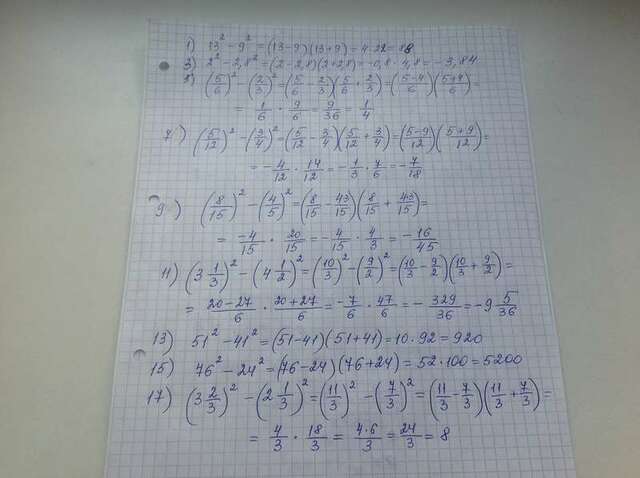 1) 13² - 9² = (13-9)(13+9) = 4·22 = 88
3) 2² - 2,8² = (2-2,8)(2+2,8) = -0,8·4,8 = -3,84
5) (5/6)² - (2/3)² = (5/6 - 2/3)(5/6 + 2/3) = (5-4/6)(5+4/6) =
= 1/6 · 9/6 = 9/36 = 1/4
7) (5/12)² - (3/4)² = (5/12 - 3/4)(5/12 + 3/4) = (5-9/12)(5+9/12) =
= -4/12 · 14/12 = -1/3 · 7/6 = -7/18
9) (8/15)² - (4/5)² = (8/15 - 43/15)(8/15 + 43/15) =
= -4/15 · 20/15 = -4/15 · 4/3 = -16/45
11) (3 1/3)² - (4 1/2)² = (10/3)² - (9/2)² = (10/3 - 9/2)(10/3 + 9/2) =
= 20-27/6 · 20+27/6 = -7/6 · 47/6 = -329/36 = -9 5/36
13) 51² - 41² = (51-41)(51+41) = 10·92 = 920
15) 76² - 24² = (76-24)(76+24) = 52·100 = 5200
17) (3 2/3)² - (2 1/3)² = (11/3)² - (7/3)² = (11/3 - 7/3)(11/3 + 7/3) =
= 4/3 · 18/3 = 4·6/3 = 24/3 = 8